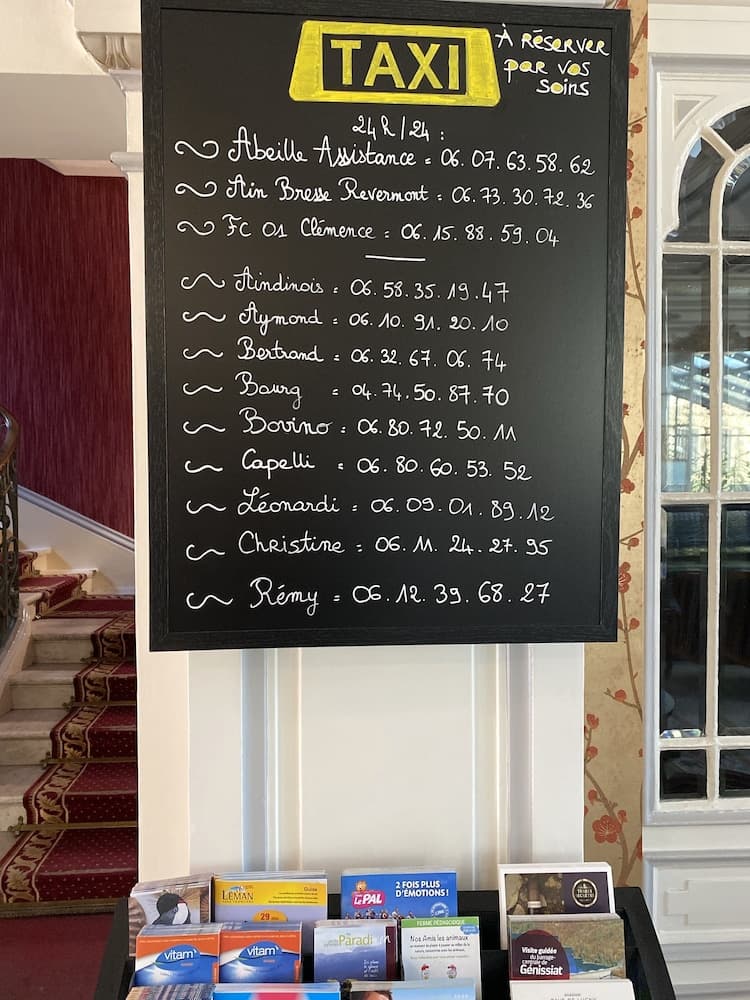 TAXI
À RéSERVER
par vos
soins
24h/24 :
Abeille Assistance = 06.07.63.58.62
Ain Bresse Revermont = 06.73.30.72.36
FC 01 Clémence = 06.15.88.59.04
Aindinois = 06.58.35.19.47
Aymond = 06.10.91.20.10
Bertrand = 06.32.67.06.74
Bourg = 04.74.50.87.70
Bovino = 06.80.72.50.11
Capelli = 06.80.60.53.52
Léonardi = 06.09.01.89.12
Christine = 06.11.24.27.95
Rémy = 06.12.39.68.27
LÉMAN
Guide
29
Le PAL
2 FOIS PLUS
D'ÉMOTIONS !
vitam'
vitam'
Paradi
FERME PÉDAGOGIQUE
Nos Amis les animaux
Visite guidée
du barrage-
centrale de
Génissiat